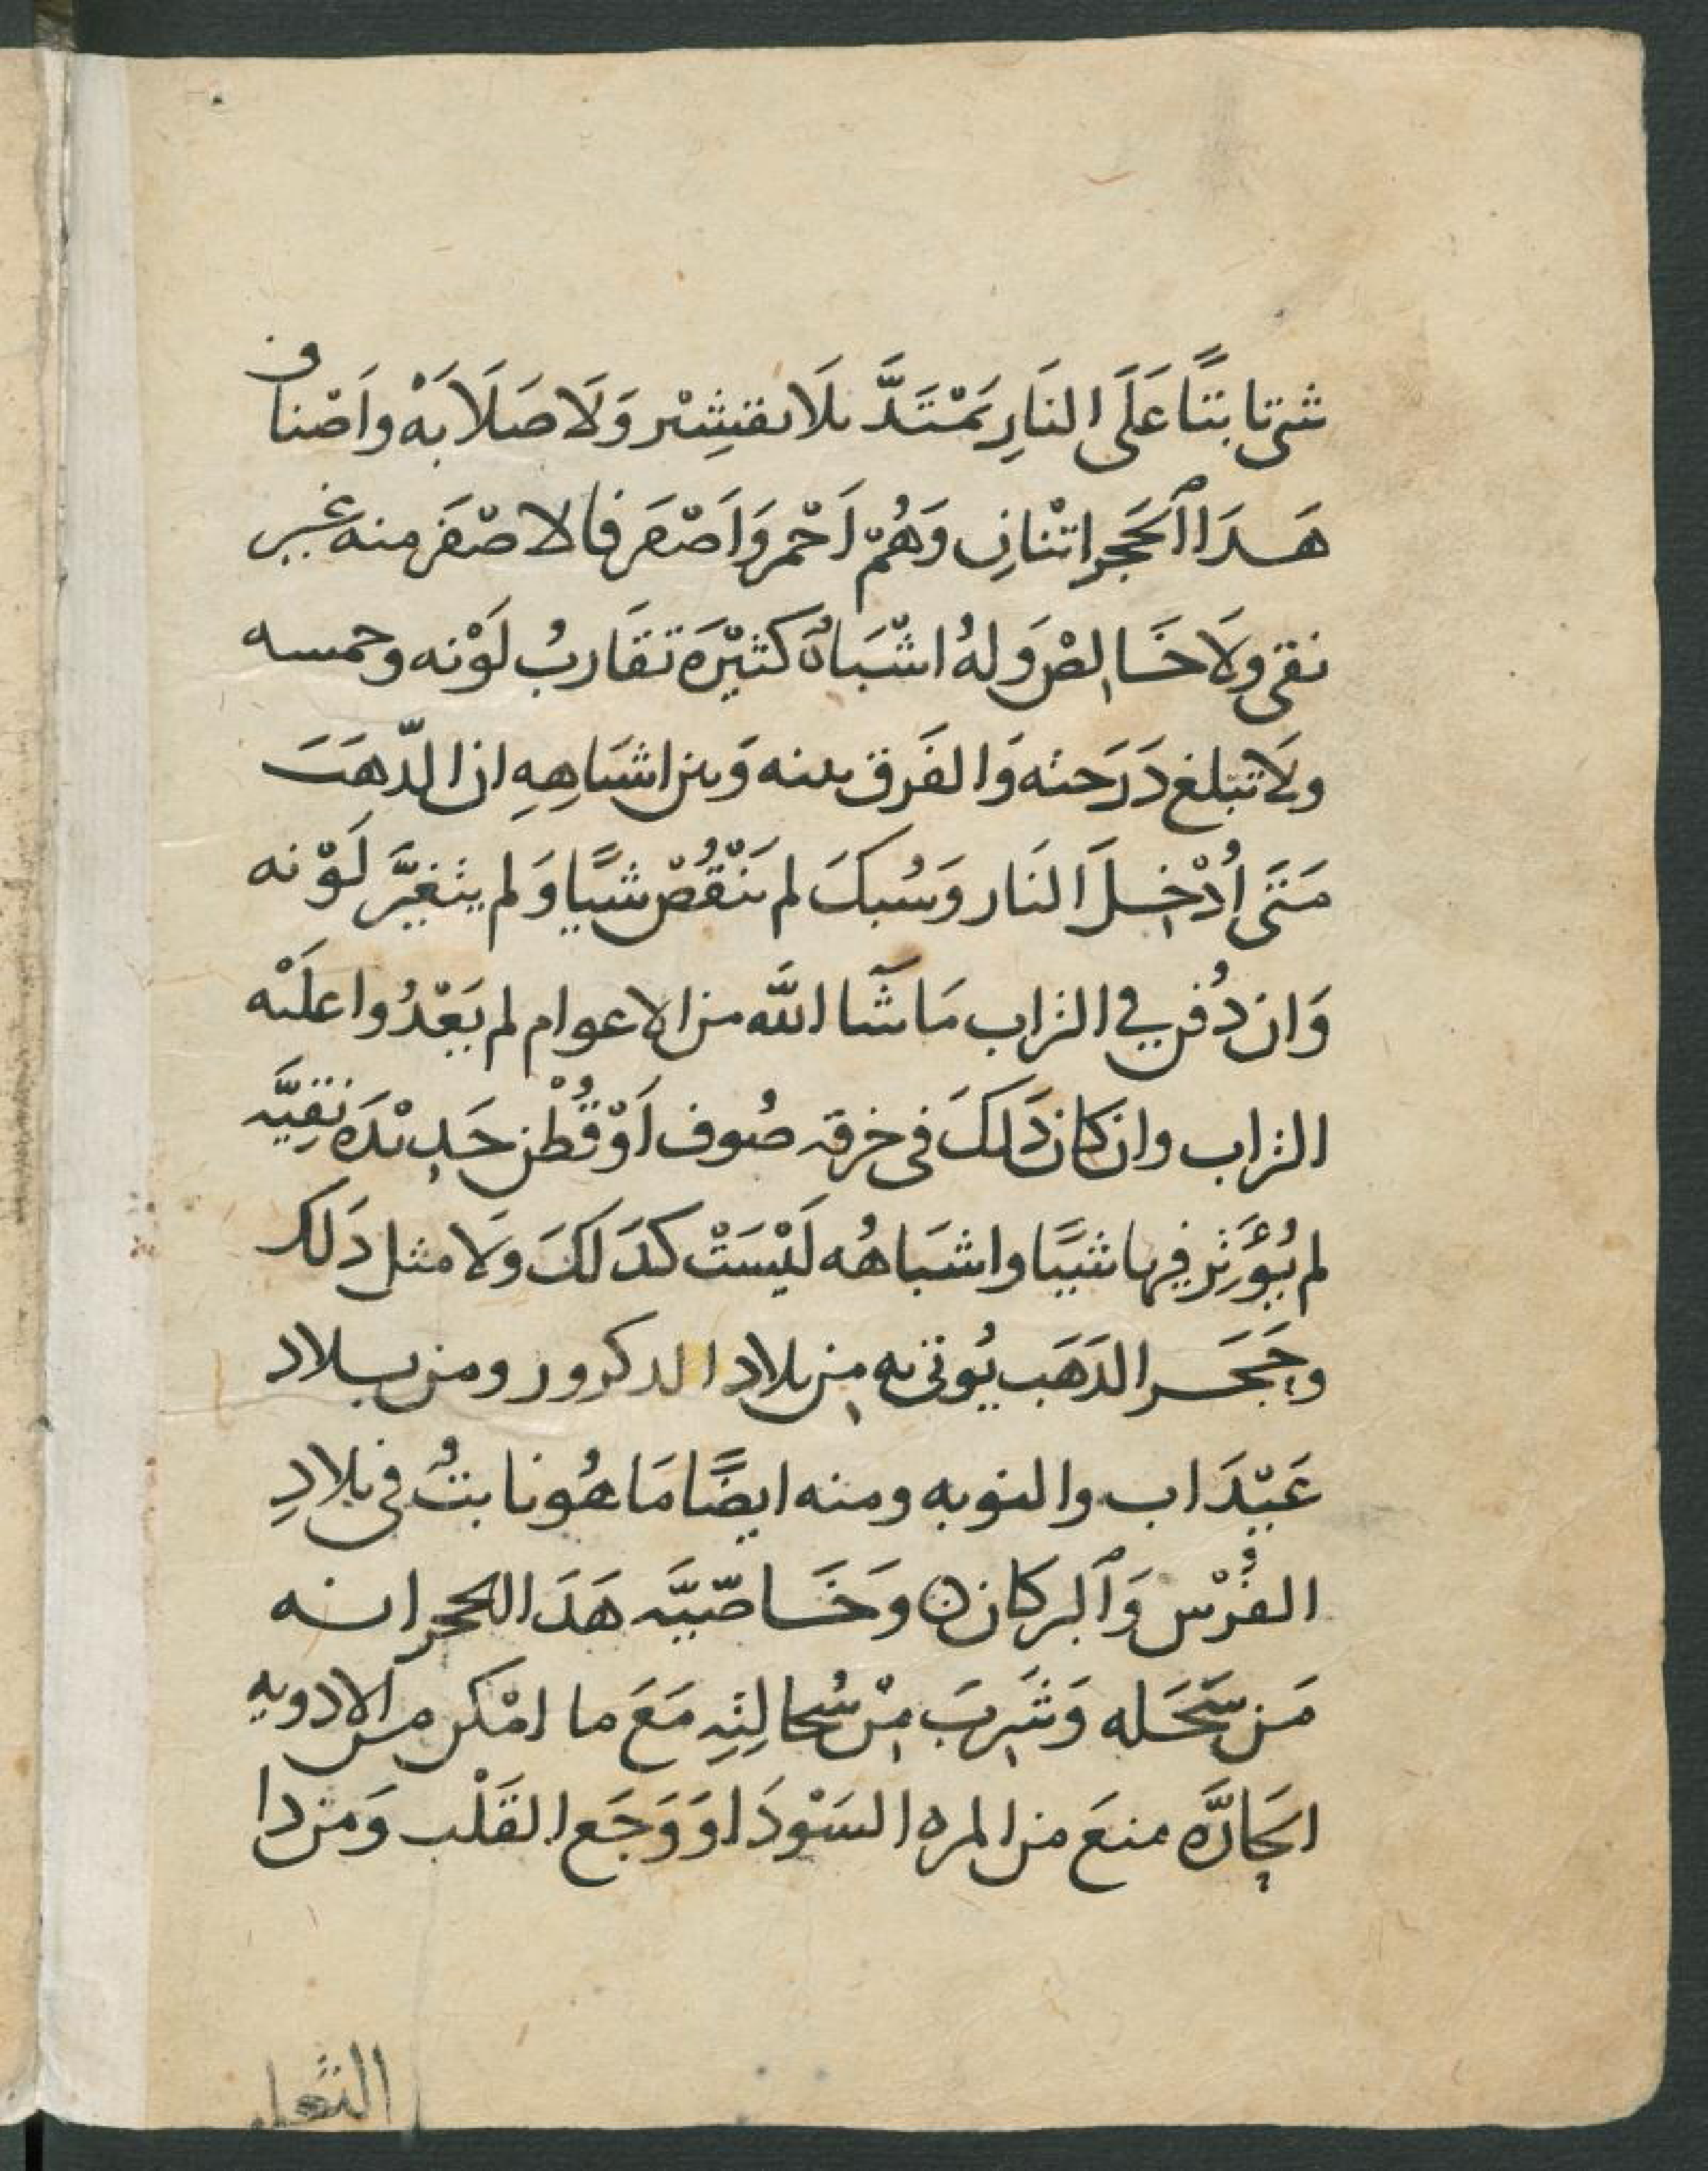 شتى ثابتًا عَلَى النَارِ يَمْتَدَّ بلَا تقشِيْر وَلَا صَلَابَه وَاَصْناف
هَدَا اٰلحَجر اتْنانِ وَهُمْ اَحْمر وَاَصْفَر فالاصْفَر منه غير
نقى ولَا خَالِصْ وَلهُ اشْبَاهٌ كثيْرَة تقَاربُ لَوْنه وحمسه
ولَا تبلغ دَرَجته وَالفَرق بينه وَبين اشبَاهِهِ ان الدّهَبَ
مَتَى اُدْخِلَ النَار وَسُبكَ لم يَنْقُصْ شيًا وَلم يتغيَّر لَوْنه
وَان دُفن في التراب مَا شَا اللّه من الاعوام لم يَعْدُوا علَيْه
التراب وان كان دَلكَ فى خرقه صُوف اَوْ قُطْن جَدِيْدَه نقِيَّه
لم يُؤَثِر فيها شيًا واشبَاهُه لَيْسَتْ كدَلَكَ وَلا مثل دَلك
وحَجَر الدَهَب يُوتى به مِن بلاد الدكرور ومن بلاد
عَيْدَاب والنوبه ومنه ايضًا مَا هُو نابتٌ فى بلادِ
الفُرْس وَاٰلبركان ه وَخَاصّيَّه هَدَا الحجر انه
مَن سَحَله وَشَرِبَ مِنْ سُحالتِهِ مَعَ ما امْكن من الادويه
الحَارَّه منعَ من المره السَوْدَا وَوَجَع القَلْب وَمن دا
الثعلب